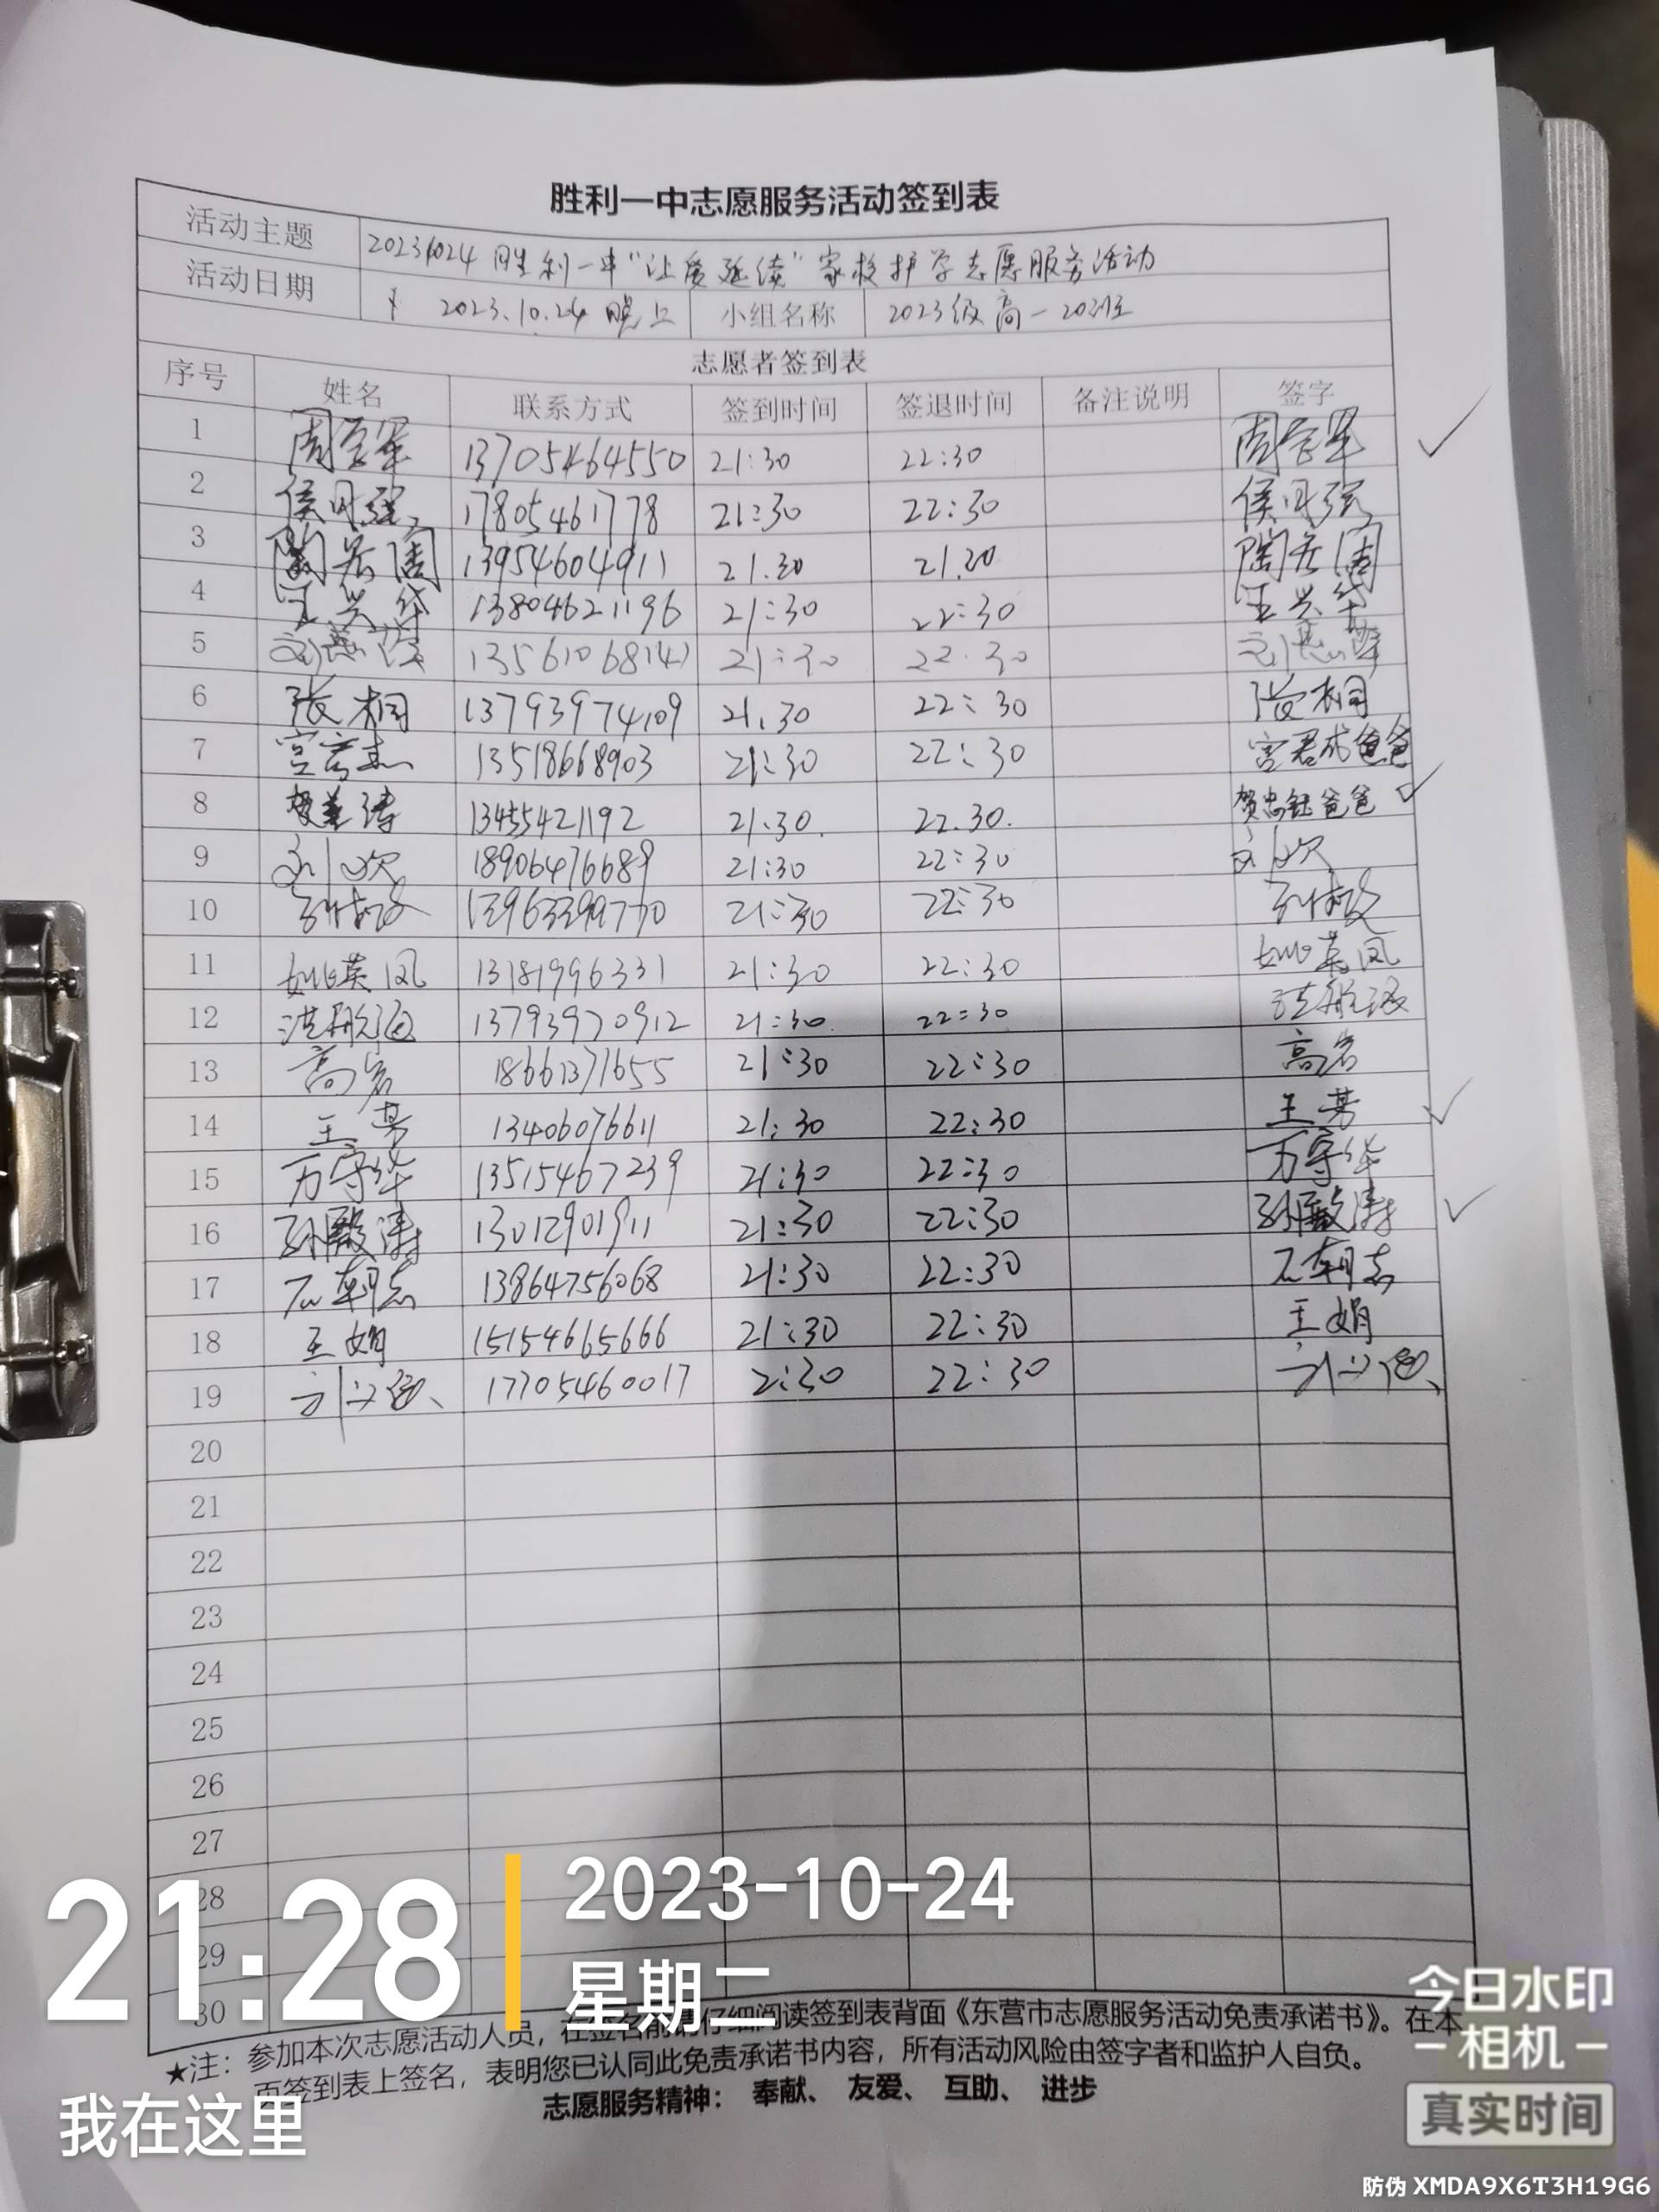 胜利一中志愿服务活动签到表
活动主题 20231024 胜利一中"让爱延续"家校护学志愿服务活动
活动日期 2023.10.24 晚上 小组名称 2023级高一20班
志愿者签到表
序号 姓名 联系方式 签到时间 签退时间 备注说明 签字
1 13705464550 21:30 22:30
2 17805461778 21:30 22:30
3 13954604911 21.30
4 王兴华 13804621196 21:30 22:30 王兴华
5 21:30 22:30
6 张桐 13793974109 21:30 22:30 张桐
7 13518668903 21:30 22:30 宫君成爸爸
8 13455421192 21.30. 22.30.
9 18906476689 21:30 22:30
10 21:30 22:30
11 姚英凤 13181996331 21:30 22:30 姚英凤
12 13793970912 21:30 22:30
13 高岩 18661371655 21:30 22:30 高岩
14 王芳 13406076611 21:30 22:30 王芳
15 万守华 13515467239 21:30 22:30 万守华
16 13012901911 21:30 22:30
17 石朝志 13864756068 21:30 22:30 石朝志
18 王娟 15154665666 21:30 22:30 王娟
19 17705460017 2:30 22:30
20
21
22
23
24
25
26
27
28
29
30
★注：参加本次志愿活动人员，在签名前请仔细阅读签到表背面《东营市志愿服务活动免责承诺书》。在本
页签到表上签名，表明您已认同此免责承诺书内容，所有活动风险由签字者和监护人自负。
志愿服务精神： 奉献、 友爱、 互助、 进步
21:28
2023-10-24
星期二
我在这里
今日水印
相机
真实时间
防伪 XMDA9X6T3H19G6